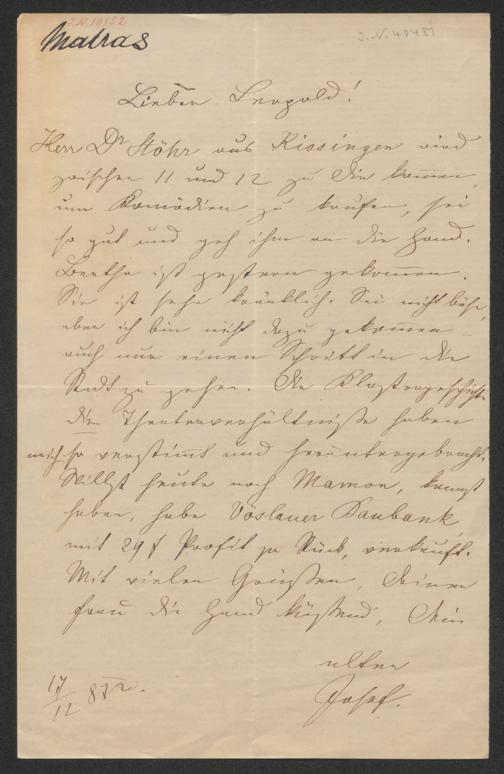 J.N. 10152
Matras
J.N. 40481
Lieber Leopold!
Herr Dr Stöhr aus Kissingen wird
zwischen 11 und 12 zu Dir kommen,
um Komödien zu kaufen, sei
so gut und geh ihm an die Hand.
Bertha ist gestern gekommen.
Sie ist sehr kränklich. Sei nicht böse,
aber ich bin nicht dazu gekommen
auch nur einen Schritt in die
Stadt zu gehen. Die Klostergeschichte
die Theaterverhältniße haben
mich so verstimt und heruntergebracht.
Willst heute noch Mamon, kannst
haben, habe Vöslauer Baubank
mit 29 f Profit pr Stück, verkauft.
Mit vielen Grüßen, Deiner
Frau die Hand küßend, Dein
alter
Josef.
17/12